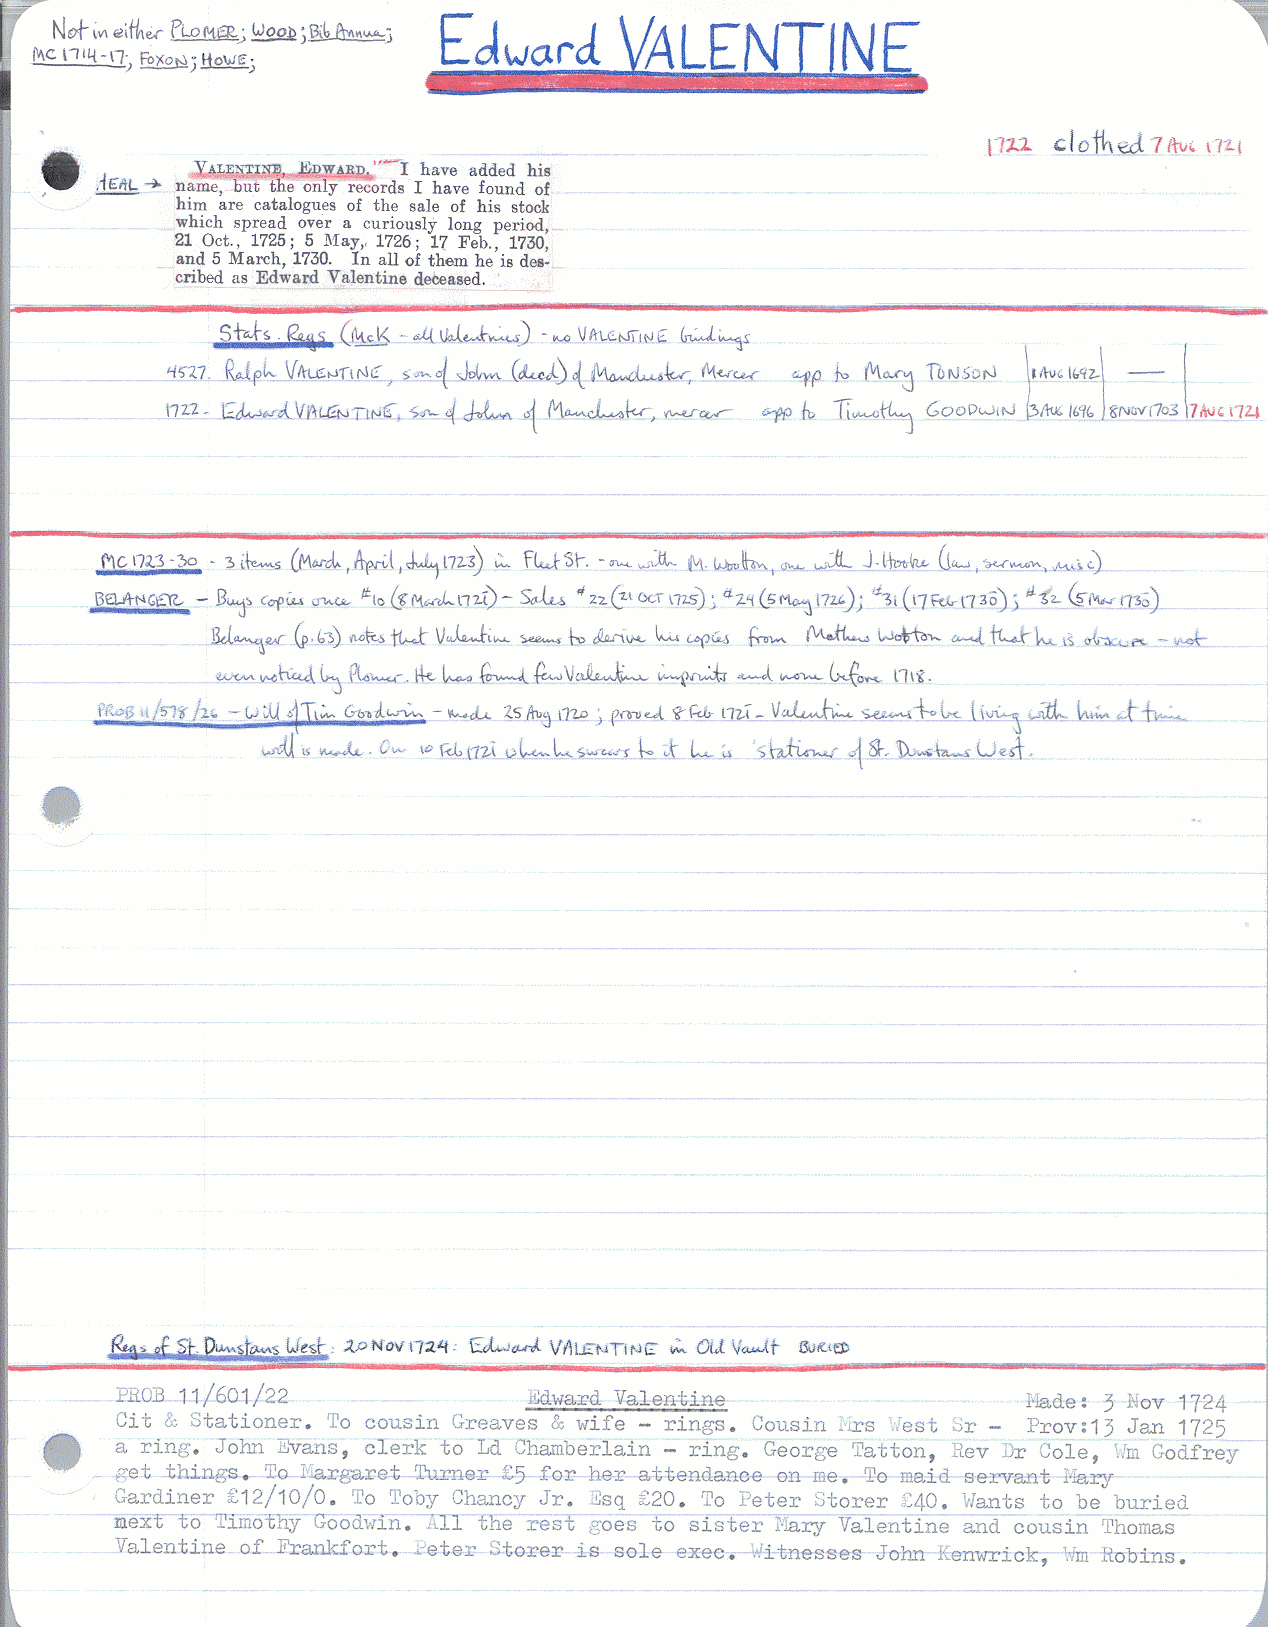 Not in either PLOMER; WOOD; Bib Annua;
MC 1714-17; FOXON; HOWE;
Edward VALENTINE
1722 clothed 7 AUG 1721
HEAL → VALENTINE, EDWARD. I have added his
name, but the only records I have found of
him are catalogues of the sale of his stock
which spread over a curiously long period,
21 Oct., 1725; 5 May, 1726; 17 Feb., 1730,
and 5 March, 1730. In all of them he is des-
cribed as Edward Valentine deceased.
Stats. Regs (McK - all Valentines) - no VALENTINE bindings
4527. Ralph VALENTINE, son of John (decd) of Manchester, Mercer app to Mary TONSON 1 AUG 1692 —
1722 - Edward VALENTINE, son of John of Manchester, mercer app to Timothy GOODWIN 3 AUG 1696 8 NOV 1703 7 AUG 1721
MC 1723-30 - 3 items (March, April, July 1723) in Fleet St. - one with M. Wootton, one with J. Hooke (law, sermon, misc)
BELANGER - Buys copies once #10 (8 March 1721) - Sales #22 (21 OCT 1725); #24 (5 May 1726); #31 (17 Feb 1730); #32 (5 Mar 1730)
Belanger (p. 63) notes that Valentine seems to derive his copies from Mathew Wotton and that he is obscure - not
even noticed by Plomer. He has found few Valentine imprints and none before 1718.
PROB 11/578/26 - Will of Tim Goodwin - made 25 Aug 1720; proved 8 Feb 1721 - Valentine seems to be living with him at time
will is made. On 10 Feb 1721 when he swears to it he is 'stationer of St. Dunstans West.
Regs of St. Dunstans West: 20 NOV 1724: Edward VALENTINE in Old Vault BURIED
PROB 11/601/22 Edward Valentine Made: 3 Nov 1724
Cit & Stationer. To cousin Greaves & wife - rings. Cousin Mrs West Sr - Prov:13 Jan 1725
a ring. John Evans, clerk to Ld Chamberlain - ring. George Tatton, Rev Dr Cole, Wm Godfrey
get things. To Margaret Turner £5 for her attendance on me. To maid servant Mary
Gardiner £12/10/0. To Toby Chancy Jr. Esq £20. To Peter Storer £40. Wants to be buried
next to Timothy Goodwin. All the rest goes to sister Mary Valentine and cousin Thomas
Valentine of Frankfort. Peter Storer is sole exec. Witnesses John Kenwrick, Wm Robins.